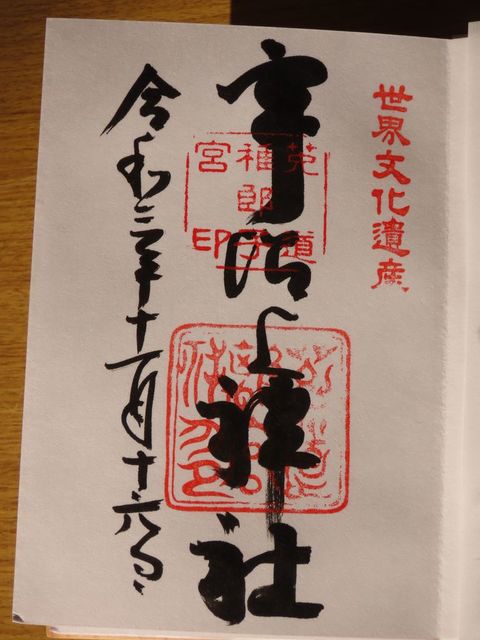 世界文化遺産
宇治上神社
菟道
稚郎子
宮印
令和三年十一月十六日